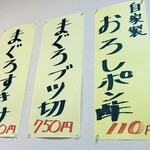 自家製
おろしポン酢
110円
まぐろブツ切
750円
まぐろすきみ
0円